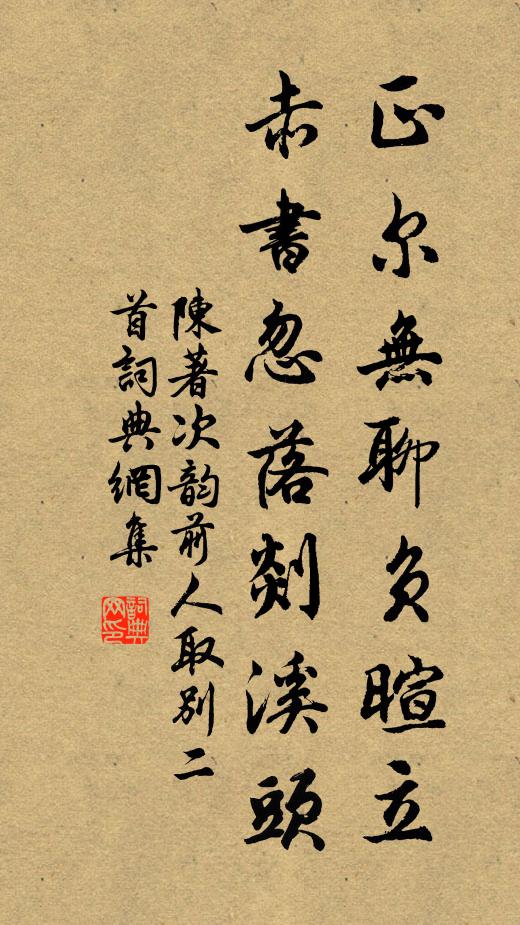 正尔無聊負暄立
赤書忽落剡溪頭
陳著次韵前人取别二
首詞典網集
詞典
网印